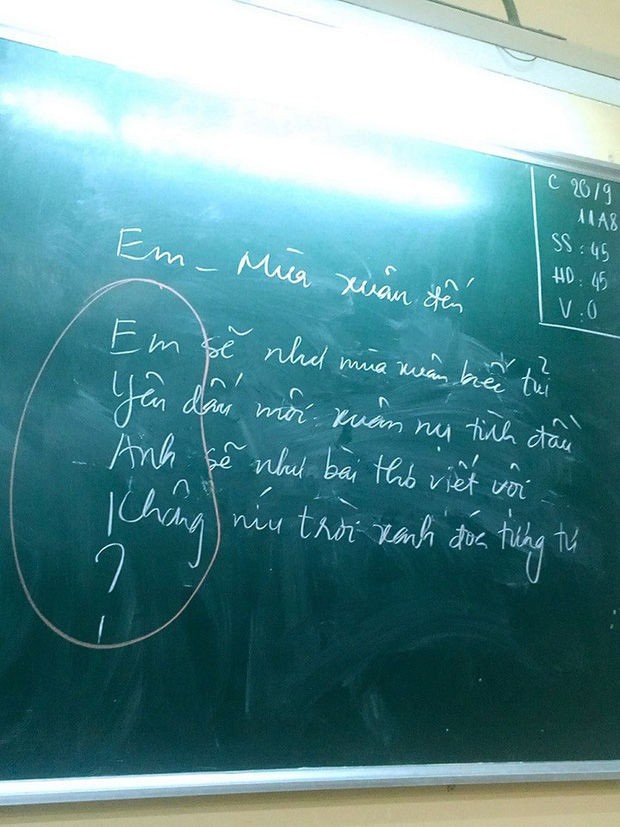 C 20/9
11A8
SS: 45
HD: 45
V: 0
Em - Mùa xuân đến
Em sẽ như mùa xuân biếc tủ
Yên dấu môi xuân nụ tình đầu
Anh sẽ như bài thơ viết vội
Không níu trời xanh đóa tương tư
?